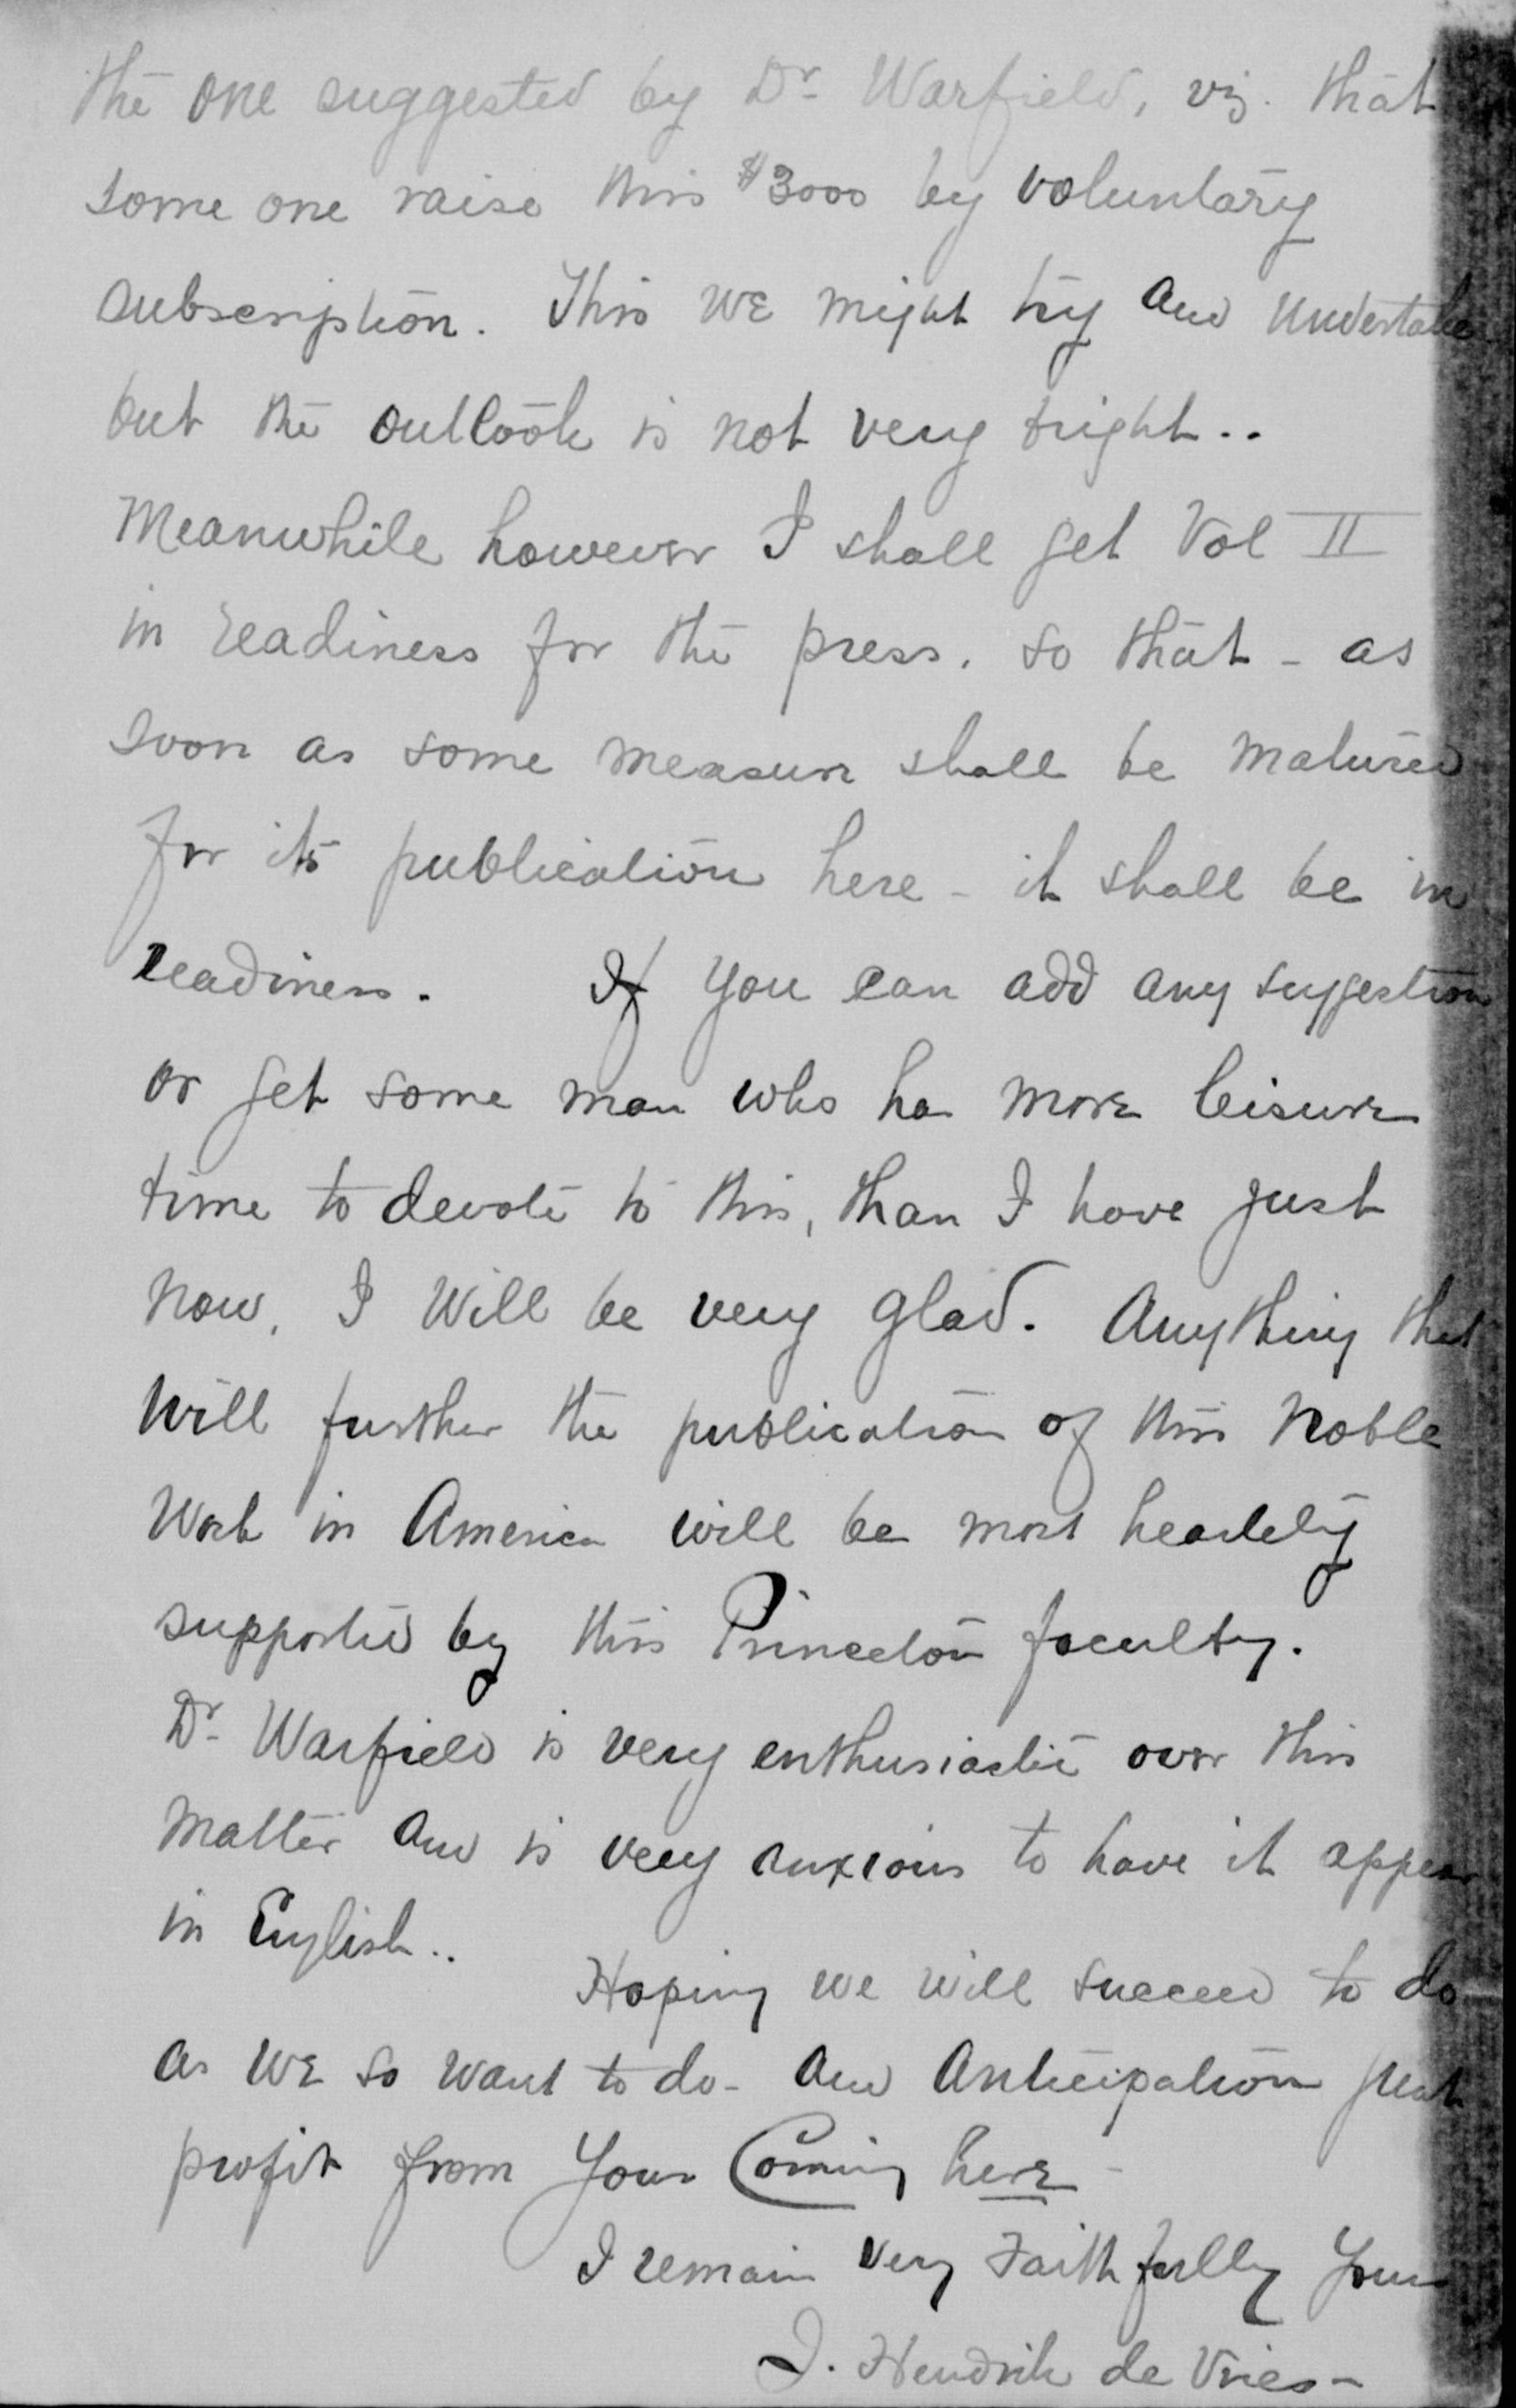 the one suggested by Dr Warfield, viz. that
some one raise this $3000 by voluntary
subscription. This we might try and undertake
but the outlook is not very bright..
Meanwhile however I shall get Vol II
in readiness for the press. so that - as
soon as some measure shall be matured
for its publication here - it shall be in
readiness. If you can add any suggestion
or get some man who has more leisure
time to devote to this, than I have just
now, I will be very glad. Anything that
will further the publication of this noble
work in America will be most heartely
supported by this Princeton faculty.
Dr Warfield is very enthusiastic over this
matter and is very anxious to have it appear
in English..
Hoping we will succeed to do
as we so want to do - and anticipation great
profit from your Coming here -
I remain very Faithfully Yours
J. Hendrik de Vries -